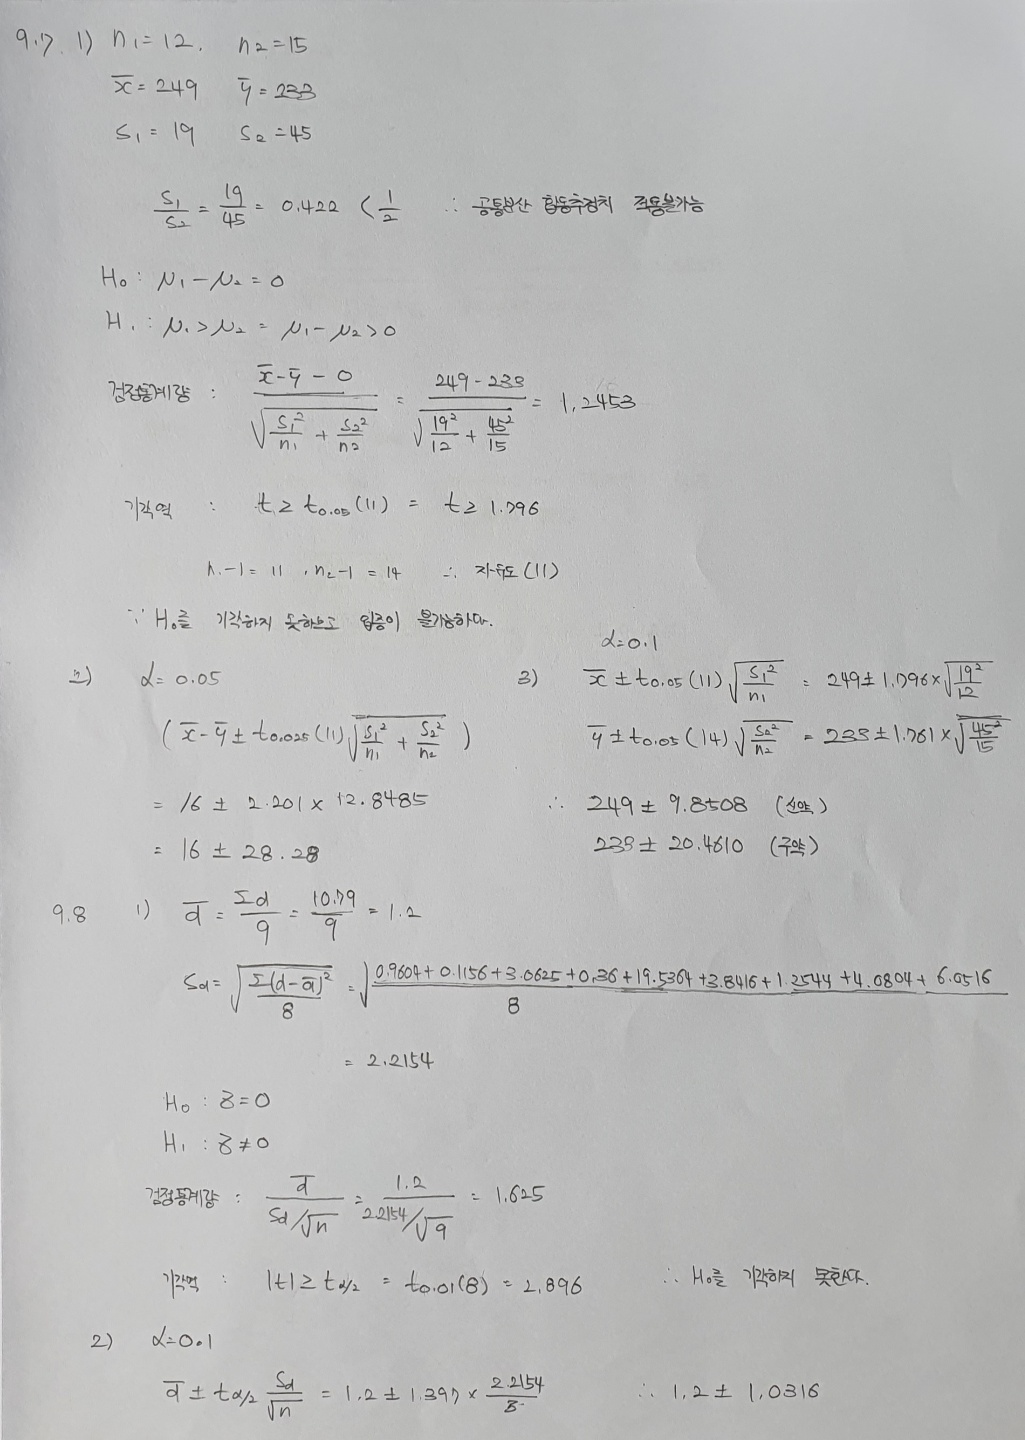 9.7 1) n₁=12, n₂=15
x̄=249 ȳ=233
S₁=19 S₂=45
S₁/S₂ = 19/45 = 0.422 < 1/2 ∴ 공통분산 합동추정치 적용불가능
H₀: μ₁-μ₂=0
H₁: μ₁>μ₂ = μ₁-μ₂>0
검정통계량 : (x̄-ȳ-0)/√(S₁²/n₁ + S₂²/n₂) = (249-233)/√(19²/12 + 45²/15) = 1.2453
기각역 : t≥t₀.₀₅(11) = t≥1.796
n₁-1=11, n₂-1=14 ∴ 자유도(11)
∵ H₀를 기각하지 못하므로 입증이 불가능하다.
2) α=0.05
(x̄-ȳ±t₀.₀₂₅(11)√(S₁²/n₁ + S₂²/n₂))
= 16 ± 2.201 × 12.8485
= 16 ± 28.28
3) α=0.1
x̄±t₀.₀₅(11)√(S₁²/n₁) = 249±1.796×√(19²/12)
ȳ±t₀.₀₅(14)√(S₂²/n₂) = 233±1.761×√(45²/15)
∴ 249±9.8508 (신약)
233±20.4610 (구약)
9.8 1) d̄ = Σd/9 = 10.79/9 = 1.2
Sd = √(Σ(d-d̄)²/8) = √((0.9604+0.1156+3.0625+0.36+19.5364+3.8416+1.2544+4.0804+6.0516)/8)
= 2.2154
H₀ : δ=0
H₁ : δ≠0
검정통계량 : d̄/(Sd/√n) = 1.2/(2.2154/√9) = 1.625
기각역 : |t|≥tα/₂ = t₀.₀₁(8) = 2.896 ∴ H₀를 기각하지 못한다.
2) α=0.1
d̄±tα/₂ Sd/√n = 1.2±1.397× 2.2154/3 ∴ 1.2±1.0316